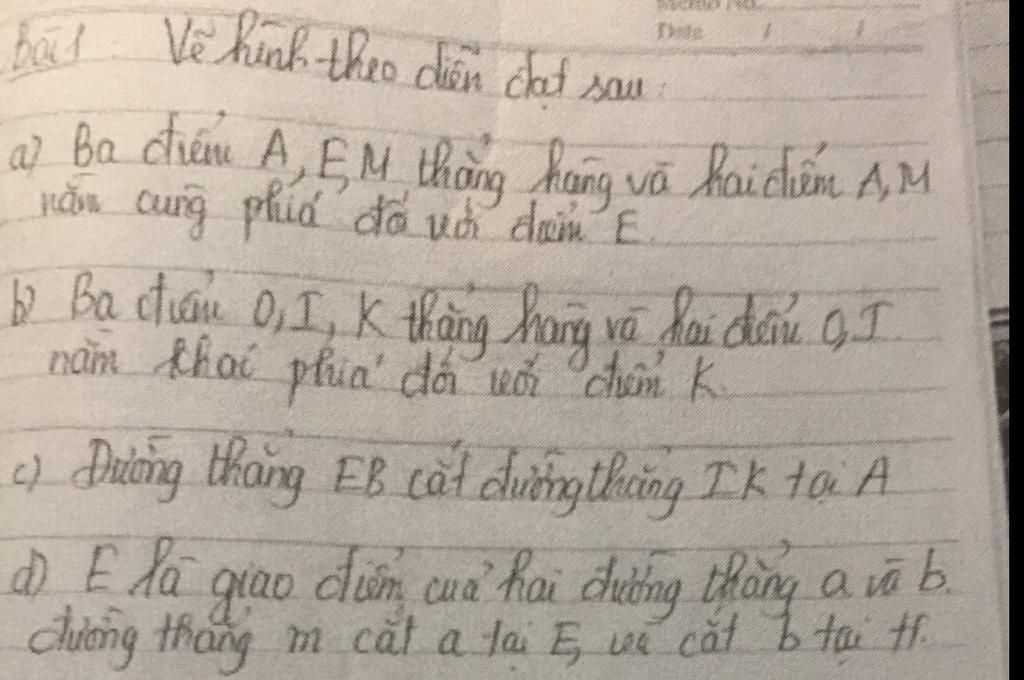 Memo No.
Date / /
Bài 1 Vẽ hình theo diễn đạt sau:
a) Ba điểm A, E, M thẳng hàng và hai điểm A, M
nằm cùng phía đối với điểm E.
b) Ba điểm O, I, K thẳng hàng và hai điểm O, I
nằm khác phía đối với điểm K.
c) Đường thẳng EB cắt đường thẳng IK tại A
d) E là giao điểm của hai đường thẳng a và b.
đường thẳng m cắt a tại E, và cắt b tại H.